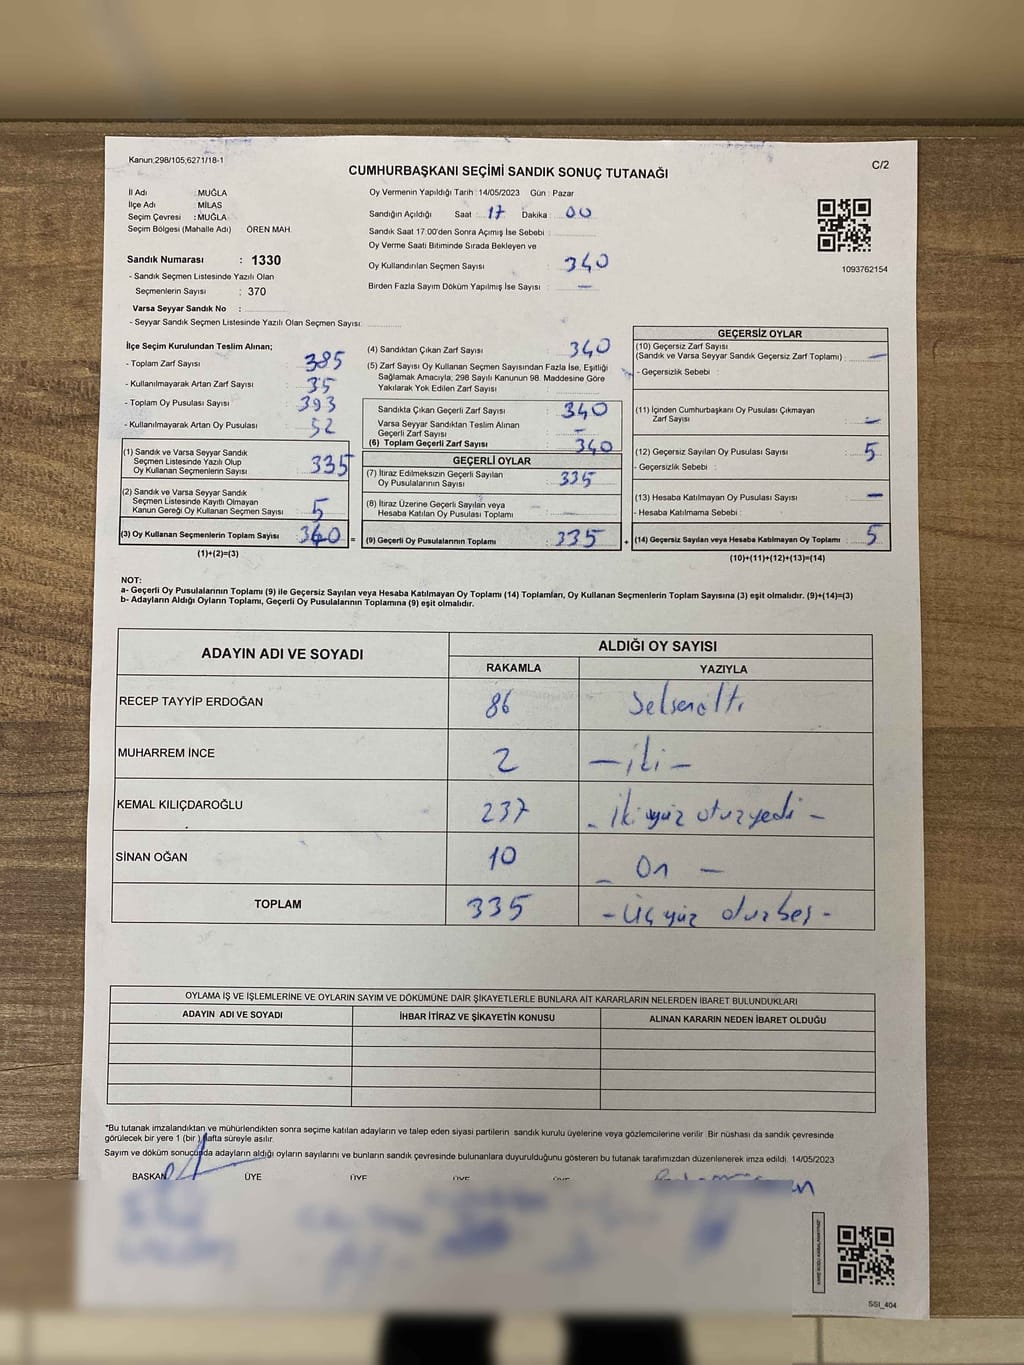 Kanun;298/105;6271/18-1
C/2
CUMHURBAŞKANI SEÇİMİ SANDIK SONUÇ TUTANAĞI
İl Adı : MUĞLA
İlçe Adı : MİLAS
Seçim Çevresi : MUĞLA
Seçim Bölgesi (Mahalle Adı) ÖREN MAH.
Oy Vermenin Yapıldığı Tarih : 14/05/2023 Gün : Pazar
Sandığın Açıldığı Saat : 17 Dakika : 00
Sandık Saat 17.00'den Sonra Açımış İse Sebebi :
Oy Verme Saati Bitiminde Sırada Bekleyen ve
Oy Kullandırılan Seçmen Sayısı : 340
Birden Fazla Sayım Döküm Yapılmış İse Sayısı : —
1093762154
Sandık Numarası : 1330
- Sandık Seçmen Listesinde Yazılı Olan
Seçmenlerin Sayısı : 370
Varsa Seyyar Sandık No :
- Seyyar Sandık Seçmen Listesinde Yazılı Olan Seçmen Sayısı:
İlçe Seçim Kurulundan Teslim Alınan;
- Toplam Zarf Sayısı : 385
- Kullanılmayarak Artan Zarf Sayısı : 35
- Toplam Oy Pusulası Sayısı : 393
- Kullanılmayarak Artan Oy Pusulası : 52
(1) Sandık ve Varsa Seyyar Sandık
Seçmen Listesinde Yazılı Olup
Oy Kullanan Seçmenlerin Sayısı : 335
(2) Sandık ve Varsa Seyyar Sandık
Seçmen Listesinde Kayıtlı Olmayan
Kanun Gereği Oy Kullanan Seçmen Sayısı : 5
(3) Oy Kullanan Seçmenlerin Toplam Sayısı : 340 =
(1)+(2)=(3)
(4) Sandıktan Çıkan Zarf Sayısı : 340
(5) Zarf Sayısı Oy Kullanan Seçmen Sayısından Fazla İse, Eşitliği
Sağlamak Amacıyla; 298 Sayılı Kanunun 98. Maddesine Göre
Yakılarak Yok Edilen Zarf Sayısı :
Sandıkta Çıkan Geçerli Zarf Sayısı : 340
Varsa Seyyar Sandıktan Teslim Alınan
Geçerli Zarf Sayısı : —
(6) Toplam Geçerli Zarf Sayısı : 340
GEÇERLİ OYLAR
(7) İtiraz Edilmeksizin Geçerli Sayılan
Oy Pusulalarının Sayısı : 335
(8) İtiraz Üzerine Geçerli Sayılan veya
Hesaba Katılan Oy Pusulası Toplamı : —
(9) Geçerli Oy Pusulalarının Toplamı : 335 +
GEÇERSİZ OYLAR
(10) Geçersiz Zarf Sayısı
(Sandık ve Varsa Seyyar Sandık Geçersiz Zarf Toplamı) : —
- Geçersizlik Sebebi :
(11) İçinden Cumhurbaşkanı Oy Pusulası Çıkmayan
Zarf Sayısı : —
(12) Geçersiz Sayılan Oy Pusulası Sayısı : 5
- Geçersizlik Sebebi :
(13) Hesaba Katılmayan Oy Pusulası Sayısı : —
- Hesaba Katılmama Sebebi :
(14) Geçersiz Sayılan veya Hesaba Katılmayan Oy Toplamı : 5
(10)+(11)+(12)+(13)=(14)
NOT:
a- Geçerli Oy Pusulalarının Toplamı (9) ile Geçersiz Sayılan veya Hesaba Katılmayan Oy Toplamı (14) Toplamları, Oy Kullanan Seçmenlerin Toplam Sayısına (3) eşit olmalıdır. (9)+(14)=(3)
b- Adayların Aldığı Oyların Toplamı, Geçerli Oy Pusulalarının Toplamına (9) eşit olmalıdır.
ADAYIN ADI VE SOYADI ALDIĞI OY SAYISI
RAKAMLA YAZIYLA
RECEP TAYYİP ERDOĞAN 86
MUHARREM İNCE 2
KEMAL KILIÇDAROĞLU 237 - İki yüz otuzyedi -
SİNAN OĞAN 10 - On -
TOPLAM 335
OYLAMA İŞ VE İŞLEMLERİNE VE OYLARIN SAYIM VE DÖKÜMÜNE DAİR ŞİKAYETLERLE BUNLARA AİT KARARLARIN NELERDEN İBARET BULUNDUKLARI
ADAYIN ADI VE SOYADI İHBAR İTİRAZ VE ŞİKAYETİN KONUSU ALINAN KARARIN NEDEN İBARET OLDUĞU
*Bu tutanak imzalandıktan ve mühürlendikten sonra seçime katılan adayların ve talep eden siyasi partilerin sandık kurulu üyelerine veya gözlemcilerine verilir. Bir nüshası da sandık çevresinde
görülecek bir yere 1 (bir) hafta süreyle asılır.
Sayım ve döküm sonucunda adayların aldığı oyların sayılarını ve bunların sandık çevresinde bulunanlara duyurulduğunu gösteren bu tutanak tarafımızdan düzenlenerek imza edildi. 14/05/2023
BAŞKAN ÜYE ÜYE ÜYE ÜYE
SSI_404